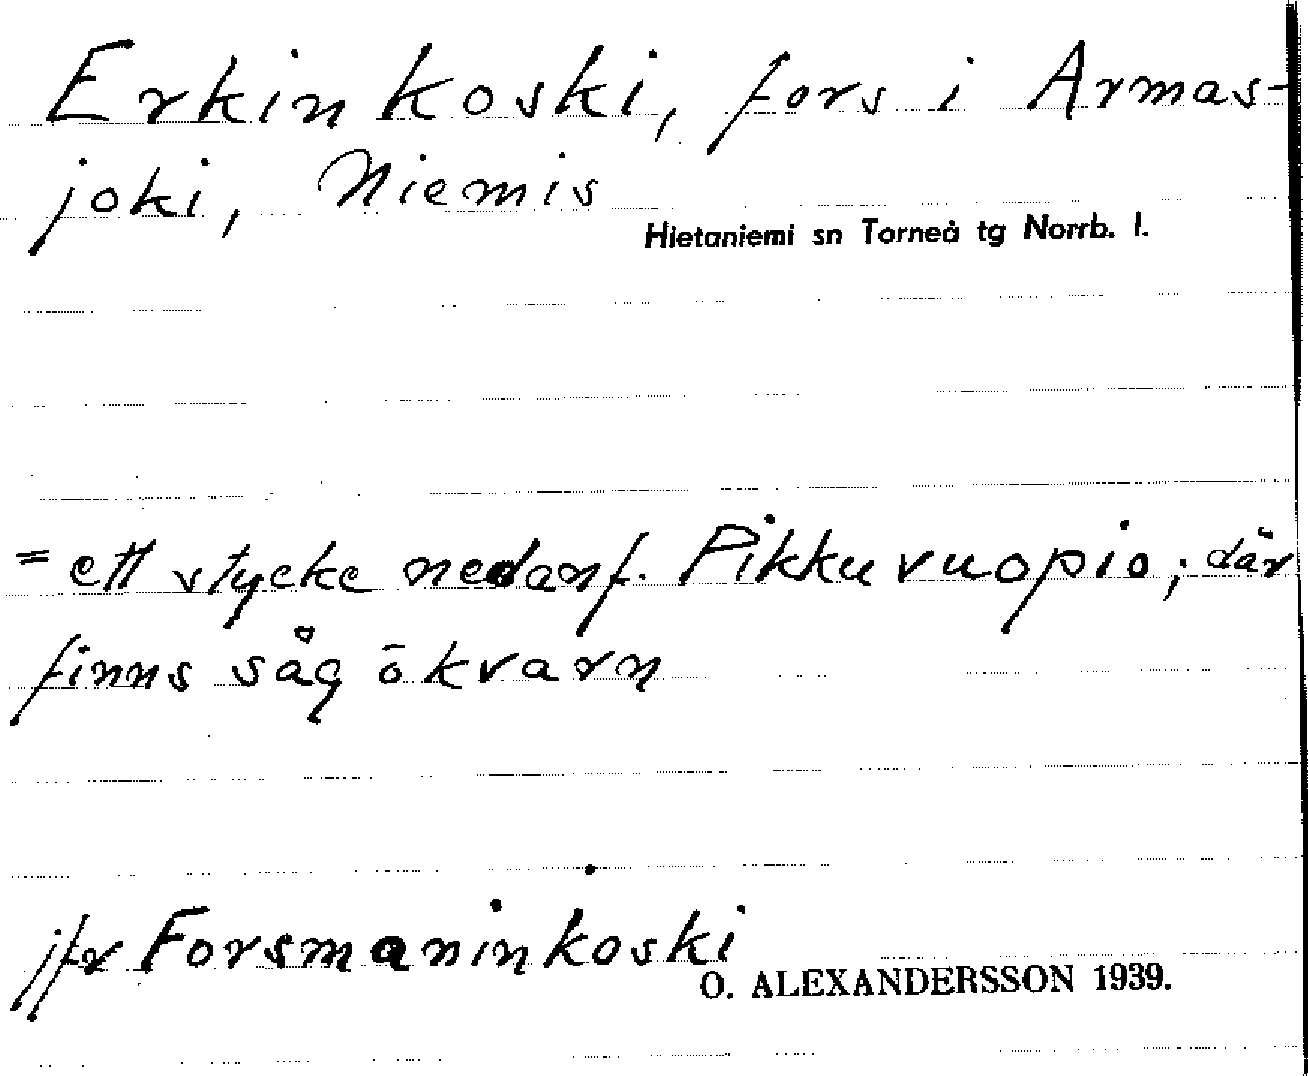 Erkinkoski, fors i Armas-
joki, Niemis
Hietaniemi sn Torneå tg Norrb. l.
= ett stycke nedanf. Pikkuvuopio; där
finns såg ō kvarn
jfr Forsmaninkoski
O. ALEXANDERSSON 1939.